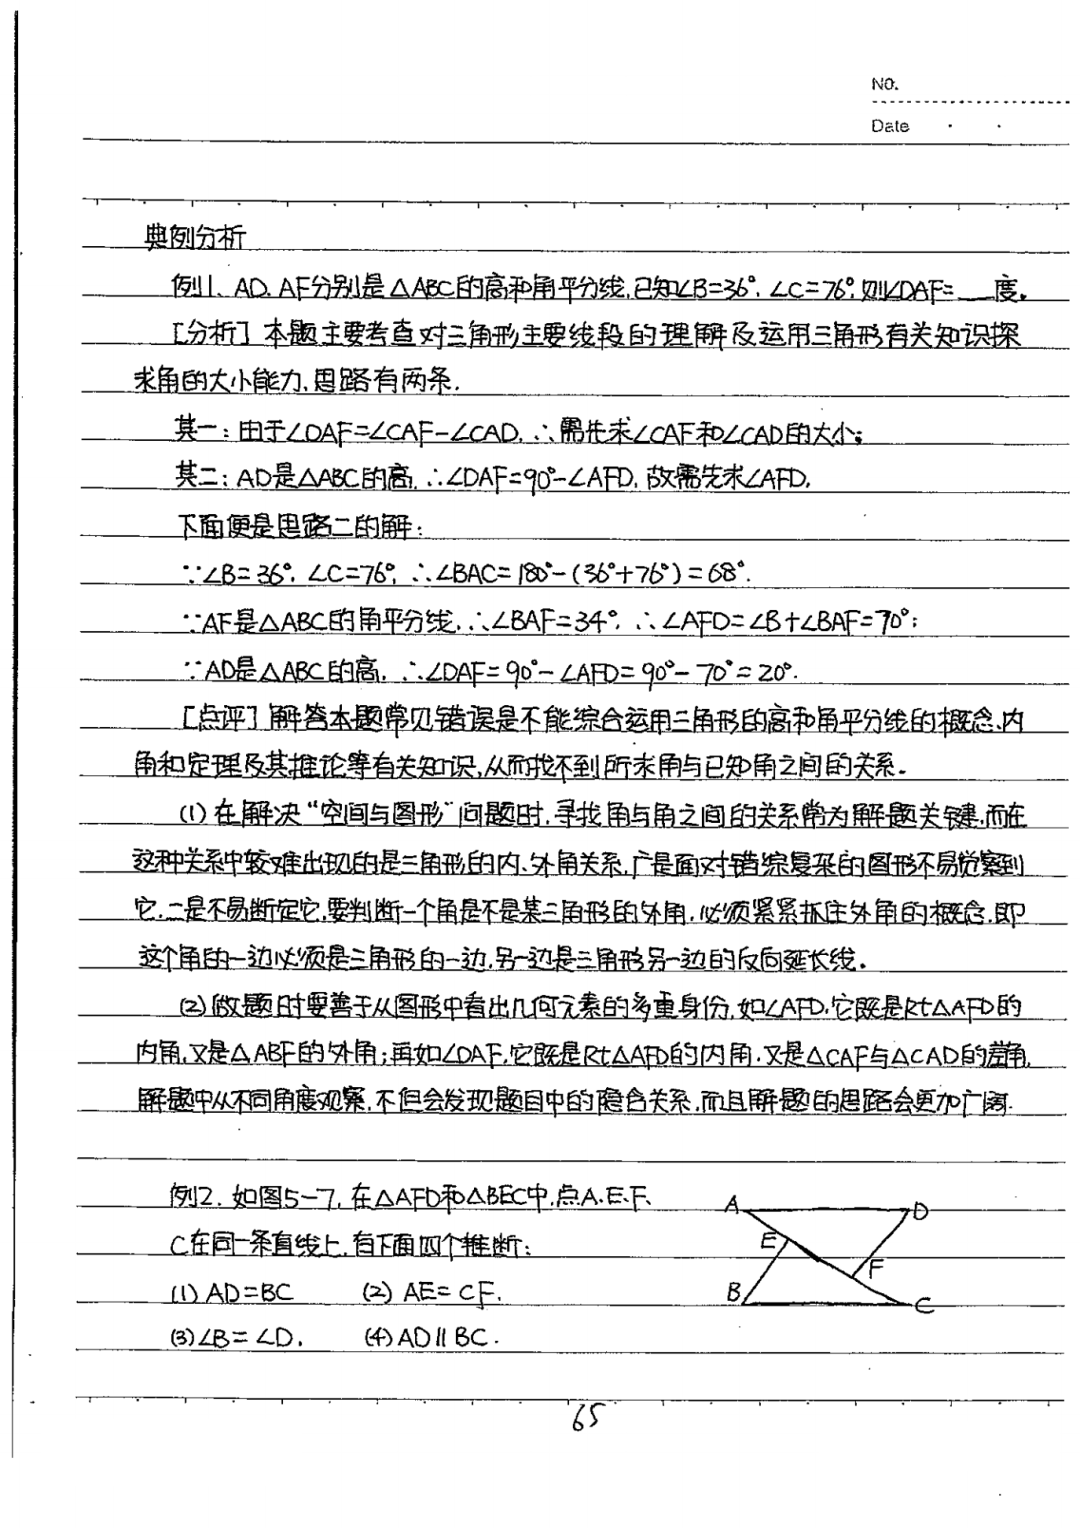 NO.
Date
典例分析
例1、AD、AF分别是△ABC的高和角平分线,已知∠B=36°,∠C=76°,则∠DAF=__度。
[分析] 本题主要考查对三角形主要线段的理解及运用三角形有关知识探
求角的大小能力,思路有两条.
其一:由于∠DAF=∠CAF-∠CAD,∴需先求∠CAF和∠CAD的大小;
其二:AD是△ABC的高,∴∠DAF=90°-∠AFD,故需先求∠AFD.
下面便是思路二的解:
∵∠B=36°,∠C=76°,∴∠BAC=180°-(36°+76°)=68°.
∵AF是△ABC的角平分线,∴∠BAF=34°,∴∠AFD=∠B+∠BAF=70°;
∵AD是△ABC的高,∴∠DAF=90°-∠AFD=90°-70°=20°.
[点评] 解答本题常见错误是不能综合运用三角形的高和角平分线的概念,内
角和定理及其推论等有关知识,从而找不到所求角与已知角之间的关系.
(1)在解决“空间与图形”问题时,寻找角与角之间的关系常为解题关键,而在
这种关系中较难出现的是三角形的内、外角关系,一是面对错综复杂的图形不易觉察到
它,二是不易断定它,要判断一个角是不是某三角形的外角,必须紧紧抓住外角的概念,即
这个角的一边必须是三角形的一边,另一边是三角形另一边的反向延长线.
(2)做题时要善于从图形中看出几何元素的多重身份,如∠AFD,它既是Rt△AFD的
内角,又是△ABF的外角;再如∠DAF,它既是Rt△AFD的内角,又是△CAF与△CAD的差角,
解题中从不同角度观察,不但会发现题目中的隐含关系,而且解题的思路会更加广阔.
例2.如图5-7,在△AFD和△BEC中,点A、E、F、
C在同一条直线上,有下面四个推断:
(1) AD=BC (2) AE=CF.
(3)∠B=∠D. (4)AD∥BC.
A
D
E
F
B
C
65